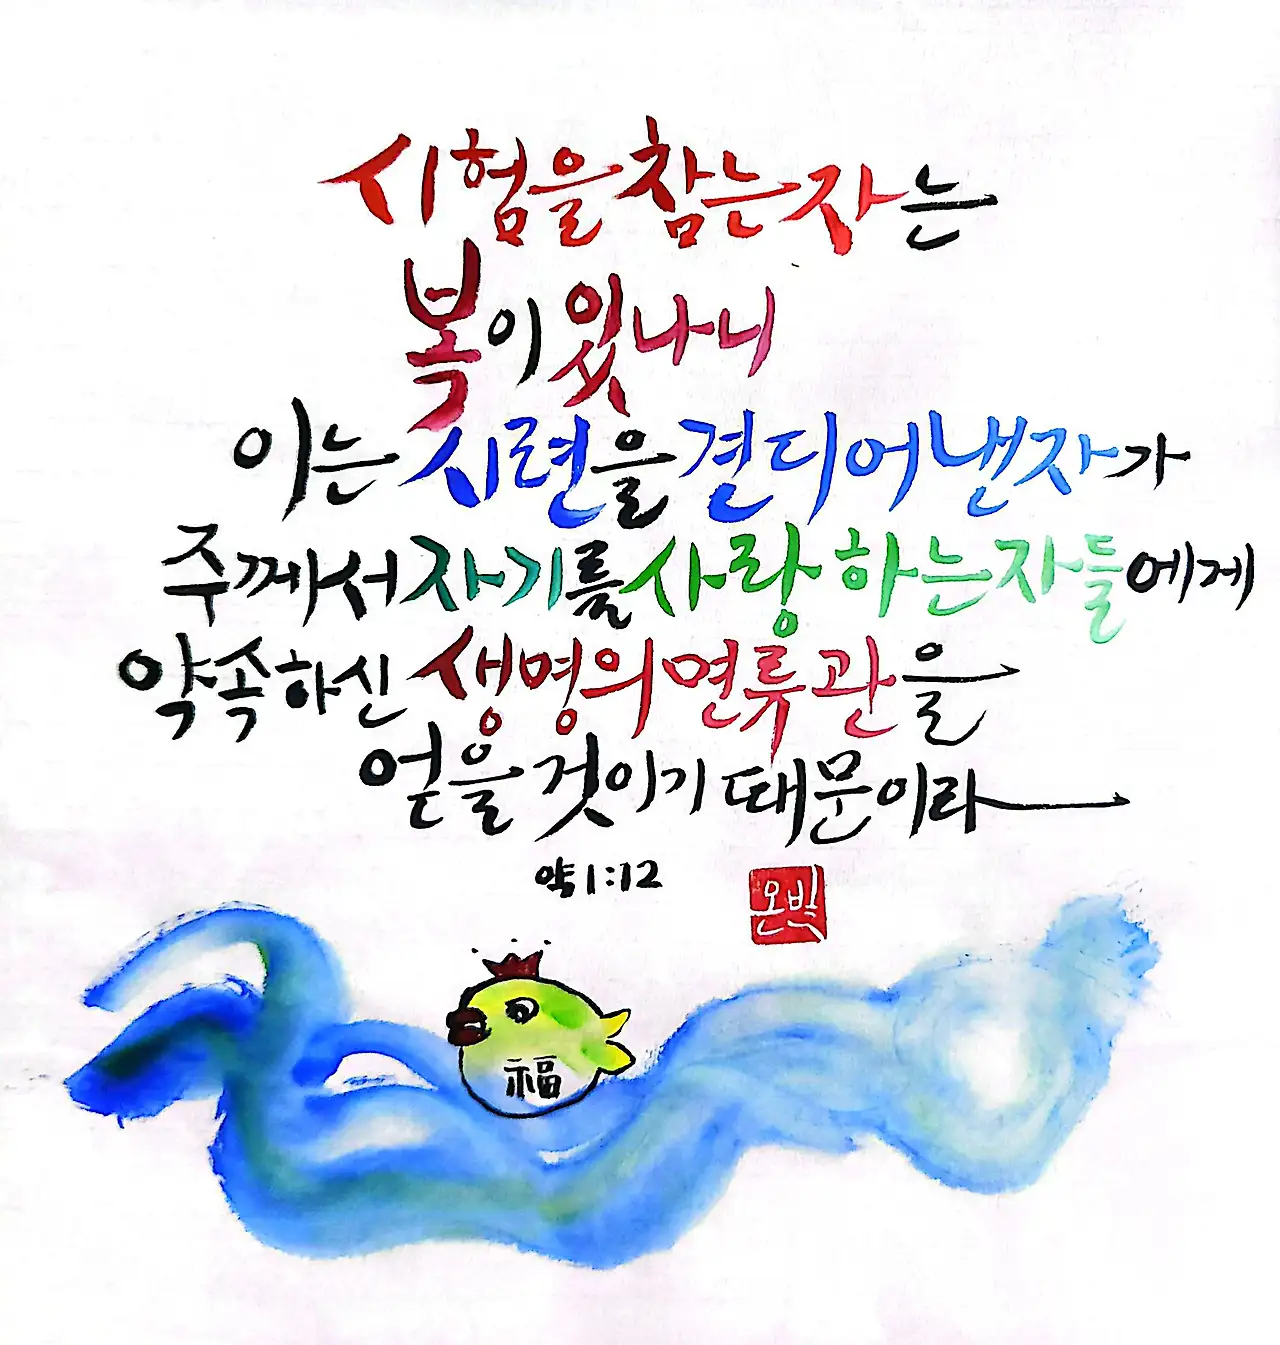 시험을 참는 자는
복이 있나니
이는 시련을 견디어 낸 자가
주께서 자기를 사랑하는 자들에게
약속하신 생명의 면류관을
얻을 것이기 때문이라
약 1:12
온빛
福